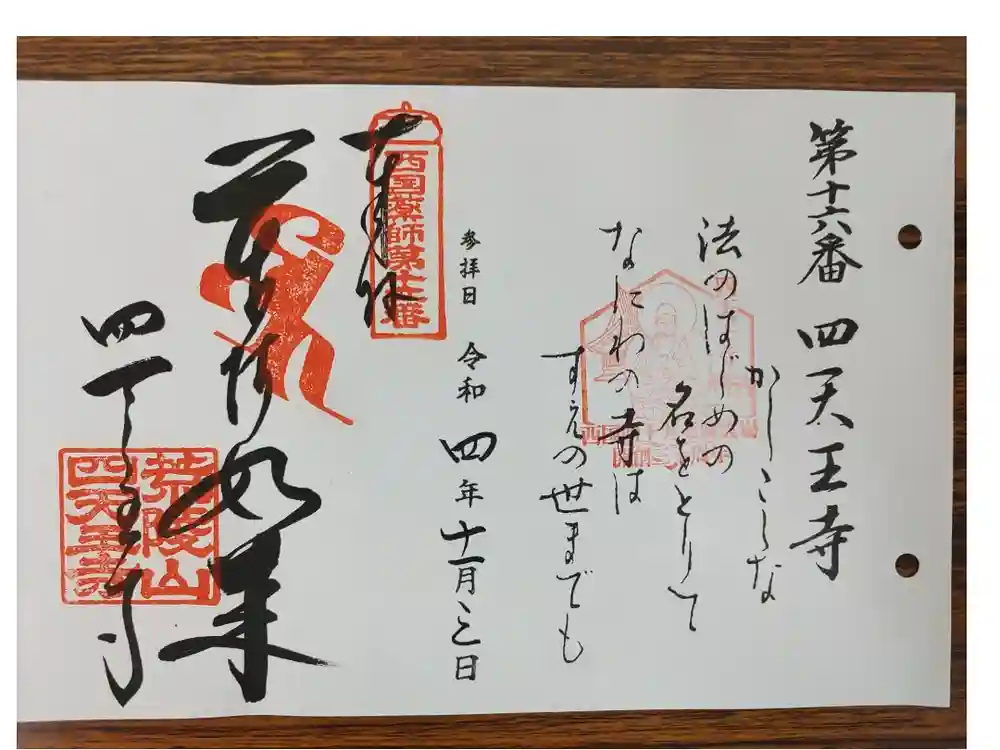 第十六番 四天王寺
かしこしな
法のはじめの
名をとりて
なにわの寺は
すえの世までも
参拝日 令和 四年 十一月三日
奉拝
西国薬師第十六番
薬師如来
四天王寺
荒陵山
四天王寺